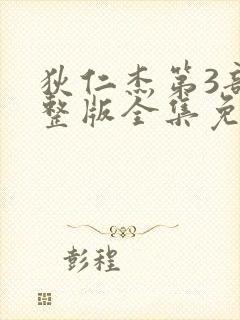 狄仁杰第3部
整版全集免
彭程